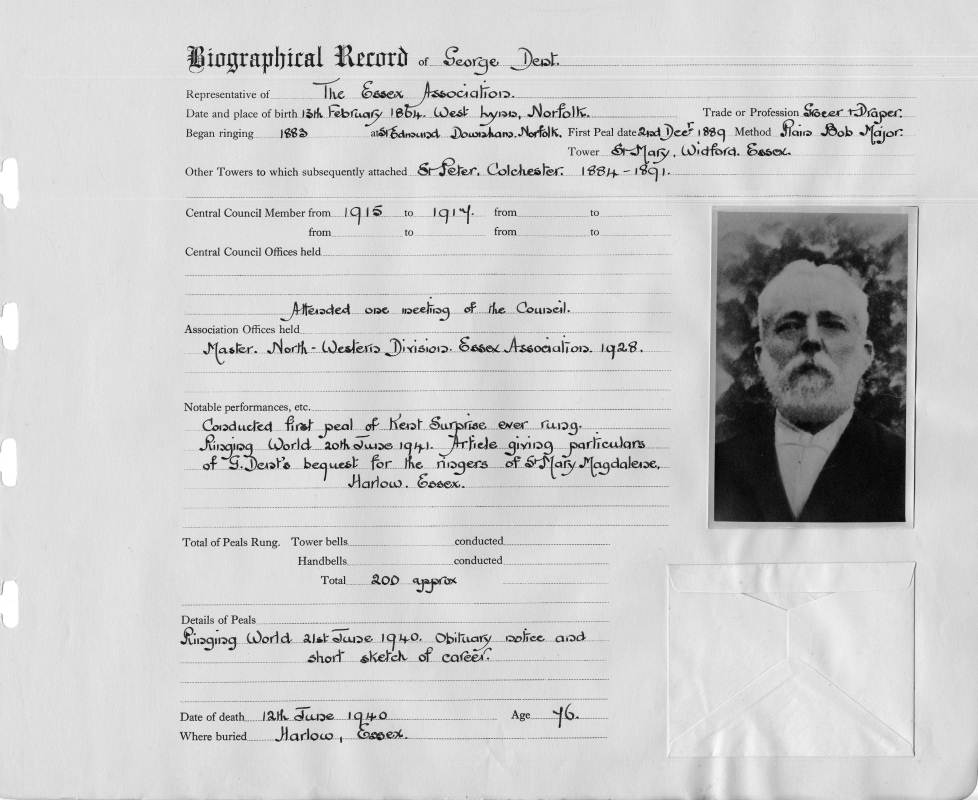 Biographical Record of George Dent.
Representative of The Essex Association.
Date and place of birth 13th February 1864. West Lynn, Norfolk. Trade or Profession Grocer + Draper.
Began ringing 1883 at St Edmund Downham. Norfolk. First Peal date 2nd Decr 1889 Method Plain Bob Major.
Tower St Mary, Widford. Essex.
Other Towers to which subsequently attached St Peter. Colchester. 1884 - 1891.
Central Council Member from 1915 to 1917. from to
from to from to
Central Council Offices held
Attended one meeting of the Council.
Association Offices held
Master. North-Western Division. Essex Association. 1928.
Notable performances, etc.
Conducted first peal of Kent Surprise ever rung.
Ringing World 20th June 1941. Article giving particulars
of G. Dent's bequest for the ringers of St Mary Magdalene,
Harlow. Essex.
Total of Peals Rung. Tower bells conducted
Handbells conducted
Total 200 approx
Details of Peals
Ringing World 21st June 1940. Obituary notice and
short sketch of career.
Date of death 12th June 1940 Age 76.
Where buried Harlow, Essex.